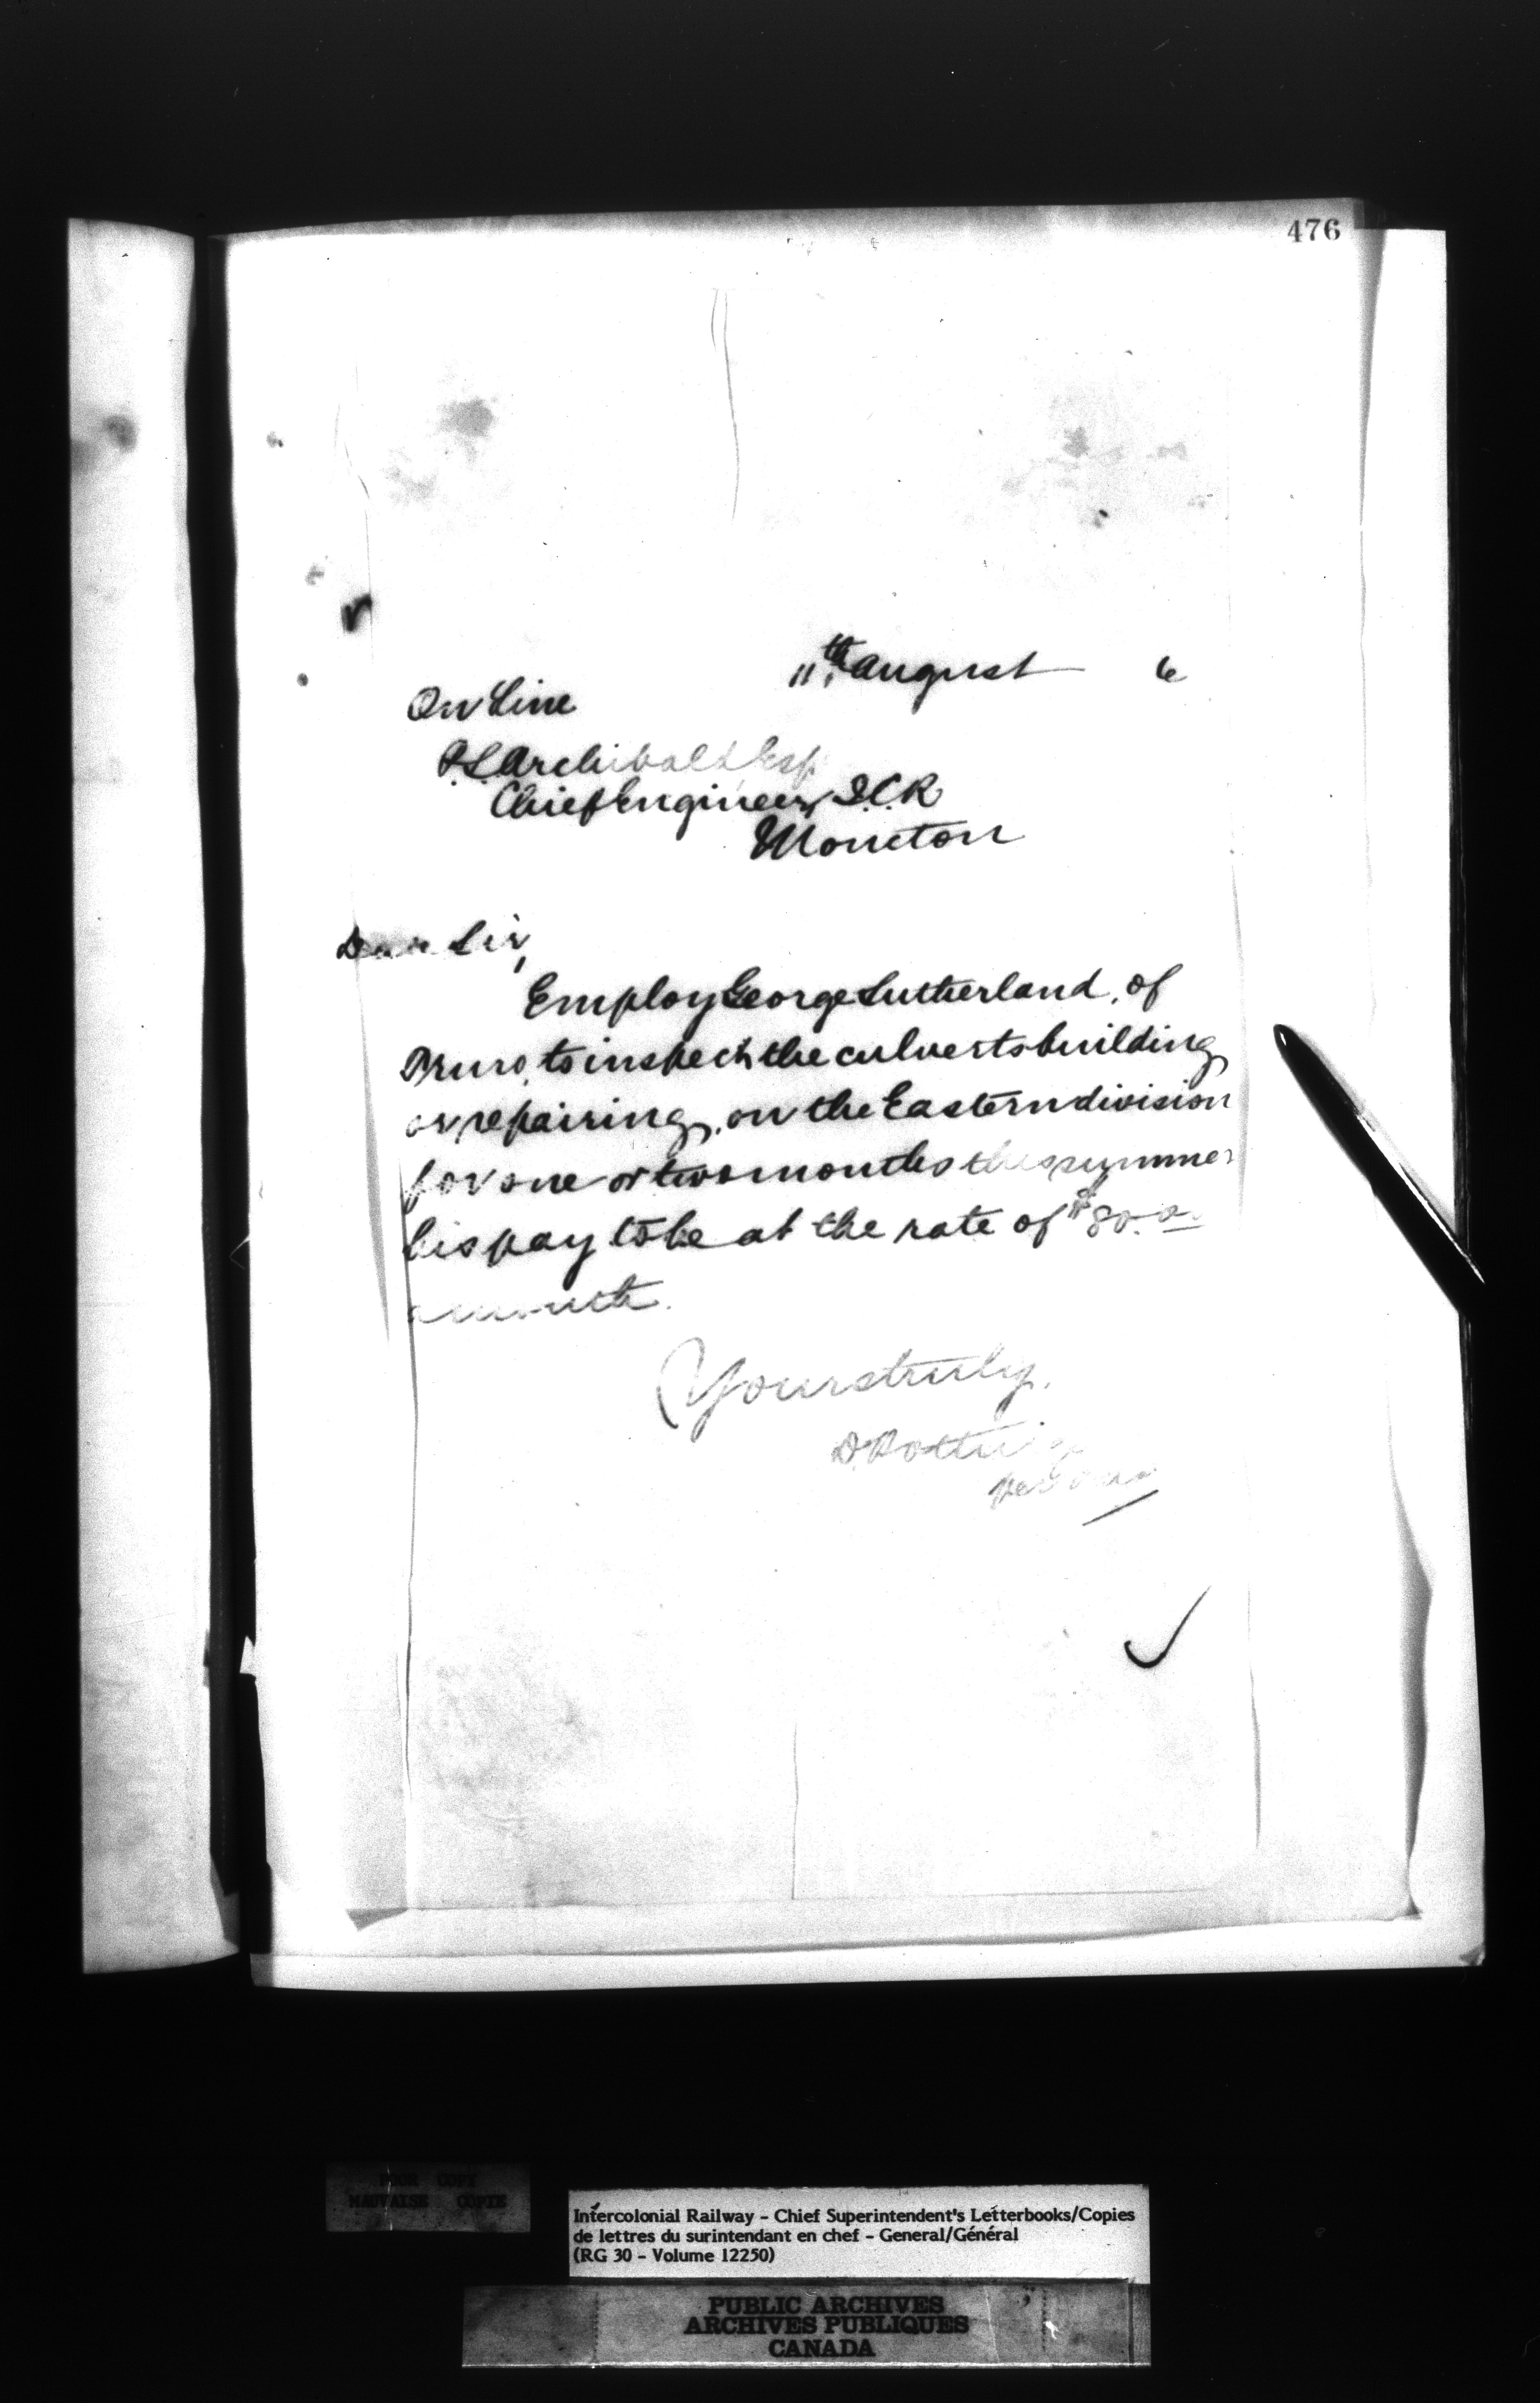 476
11th August 6
On Line
P.S. Archibald Esq
Chief Engineer I.C.R
Moncton
Dear Sir,
Employ George Sutherland, of
Truro, to inspect the culverts building
or repairing, on the Eastern division
for one or two months this summer
his pay to be at the rate of $80.00
a month.
Yours truly,
D. Pottinger
POOR COPY
MAUVAISE COPIE
Intercolonial Railway - Chief Superintendent's Letterbooks/Copies
de lettres du surintendant en chef - General/Général
(RG 30 - Volume 12250)
PUBLIC ARCHIVES
ARCHIVES PUBLIQUES
CANADA